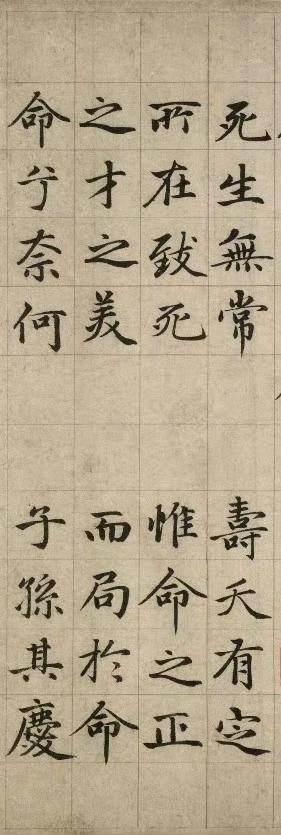 死生無常　壽夭有定
所在致死　惟命之正
之才之美　而局於命
命兮奈何　子孫其慶